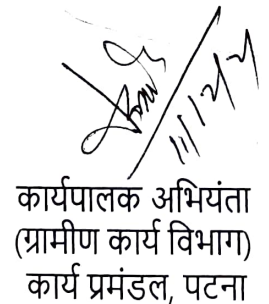 11/12/24
कार्यपालक अभियंता
(ग्रामीण कार्य विभाग)
कार्य प्रमंडल, पटना